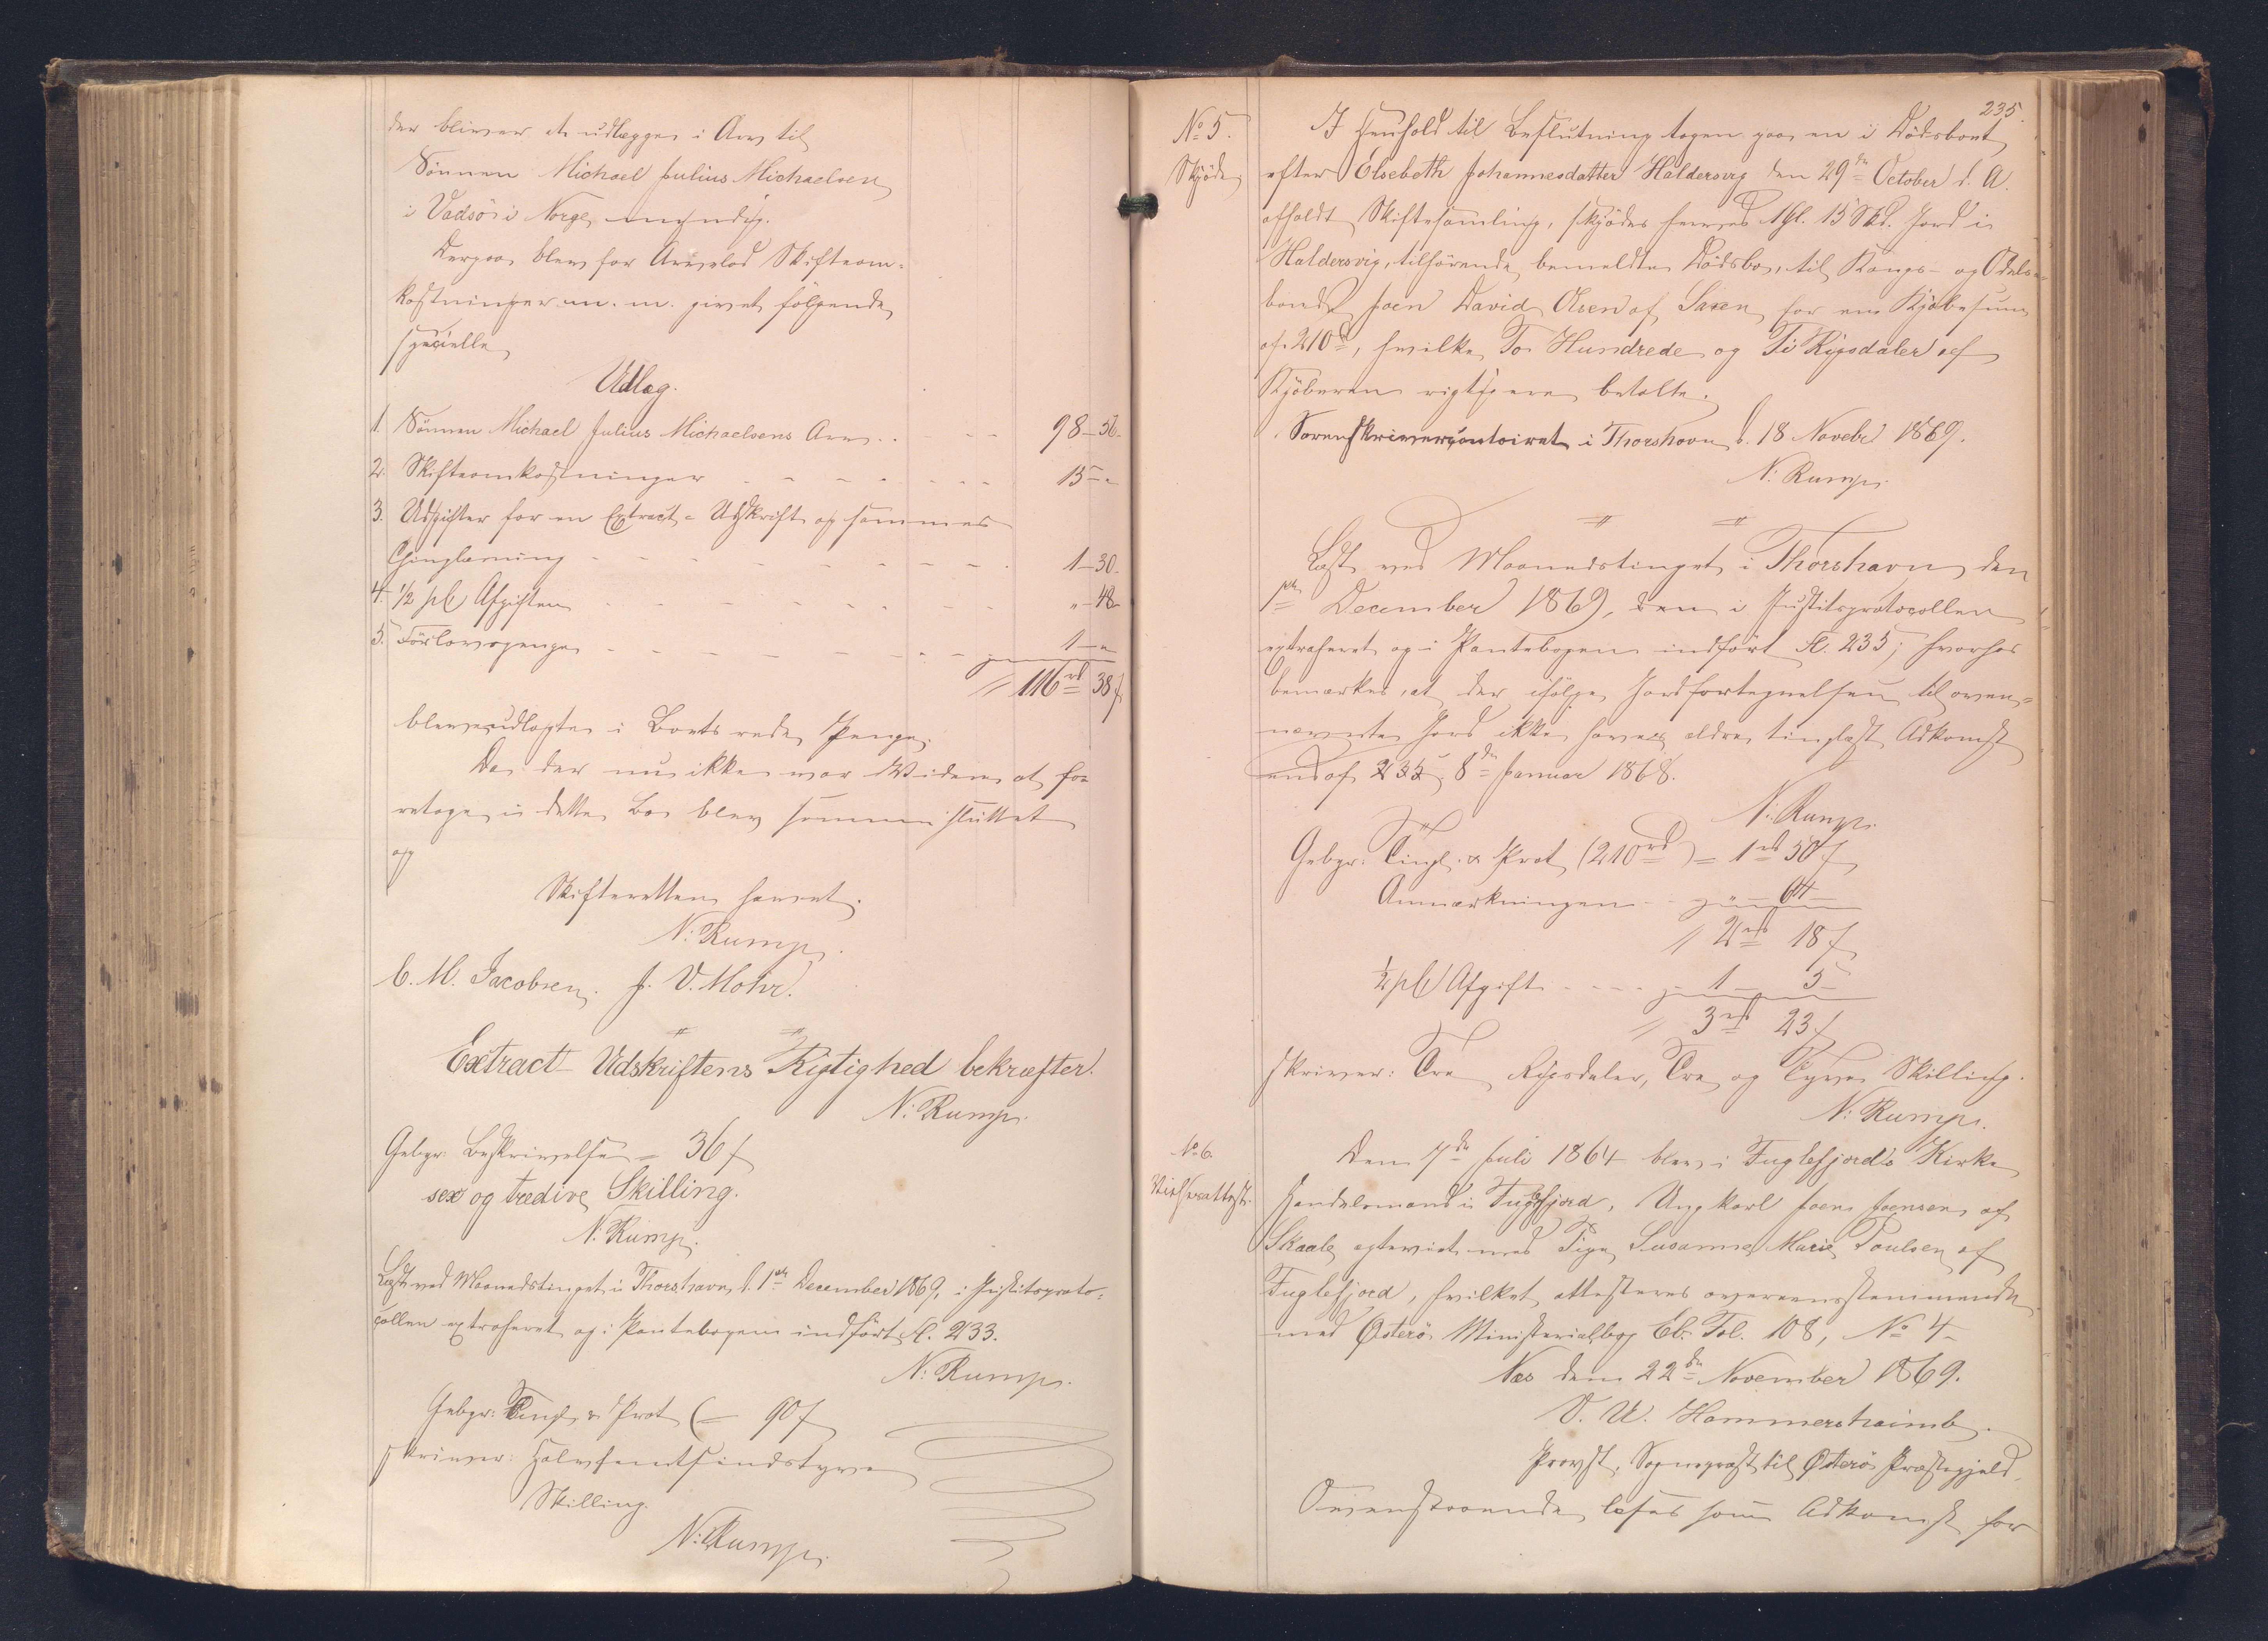 der bliver at udlægge i Arv til
Sönnen Michael Julius Michaelsen
i Vadsö i Norge, myndig.
Derpaa blev for Arvelod Skifteom-
kostninger m. m. givet fölgende
specielle
Udlæg.
1. Sönnen Michael Julius Michaelsens Arv 98-56-
2. Skifteomkostninger 15 - "
3. Udgifter for en Extract-Udskrift og sammes
Thinglæsning 1-30.
4. 1/2 pC Afgiften " - 48
5. Forlovspenge 1 - "
= 116 rd 38 s
bleve udlagte i Boets rede Penge.
Da der nu ikke var Videre at fore
retage i dette Bo blev samme sluttet
og
Skifteretten hævet.
N: Rump.
C. M. Jacobsen. J. V. Mohr.
Extract-Udskriftens Rigtighed bekræfter.
N: Rump.
Gebyr: Beskrivelsen = 36 s
sex og tredive Skilling.
N: Rump.
Læst ved Maanedstinget i Thorshavn d. 1ste December 1869, i Justitsproto-
collen extraheret og i Pantebogen indfört Fl. 233.
N: Rump.
Gebyr: Tingl. & Prot. (= 90 s
skriver: Halvfemtsindstyve
Skilling.
N: Rump.
235.
No 5.
Skjöde
I Henhold til Beslutning tagen paa en i Dödsboet
efter Elsebeth Johannesdatter Haldersvig den 29de October d. A.
afholdt Skiftesamling, skjödes herved 1 Gl. 15 Skd. Jord i
Haldersvig, tilhörende bemeldte Dödsbo, til Kongs- og Odels-
bonde Joen David Olsen af Saxen for en Kjöbesum
af 210 rd, hvilke To Hundrede og Ti Rigsdaler af
Kjöberen rigtig ere betalte.
Sorenskrivercontoiret i Thorshavn d. 18 Novebr 1869.
N: Rump.
Læst ved Maanedstinget i Thorshavn den
1ste December 1869, den i Justitsprotocollen
extraheret og i Pantebogen indfört Fl. 235; hvorhos
bemærkes, at der ifölge Jordfortegnelsen til oven-
nævnte Jord ikke haves ældre tinglæst Adkomst
end af 8de Januar 1868.
N: Rump.
Gebyr: Tingl. & Prot (210 rd) = 1 rd 50 s
Anmærkningen = " - 64 -
= 2 rd 18 s
1/2 pC Afgift = 1 - 5 -
= 3 rd 23 s
skriver: Tre Rigsdaler, Tre og Tyve Skilling.
N: Rump.
No 6.
Vielsesattest.
Den 7de Juli 1864 blev i Fuglefjords Kirke
Handelsmand i Fuglefjord, Ungkarl Joen Joensen af
Skaale ægteviet med Pige Susanne Marie Poulsen af
Fuglefjord, hvilket attesteres overeensstemmende
med Österö Ministerialbog Cb. Fol. 108, No 4.
Næs den 22de November 1869.
V. U. Hammershaimb.
Provst, Sognepræst til Österö Præstegjeld.
Ovenstaaende læses som Adkomst for